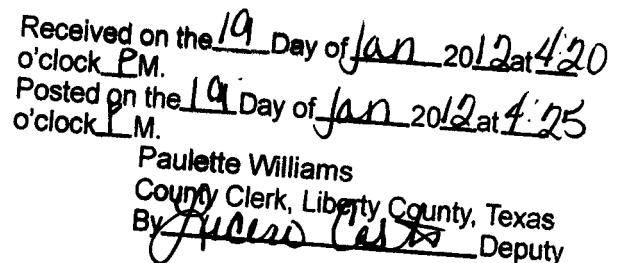 Received on the 19 Day of Jan 2012 at 4:20
o'clock P M.
Posted on the 19 Day of Jan 2012 at 4:25
o'clock P M.
Paulette Williams
County Clerk, Liberty County, Texas
By Deputy